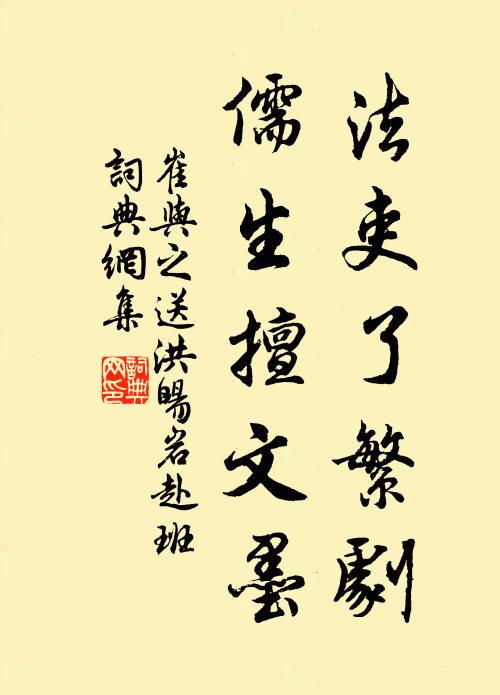 法吏了繁劇
儒生擅文墨
崔與之送洪暘岩赴班
詞典網集
詞典网印